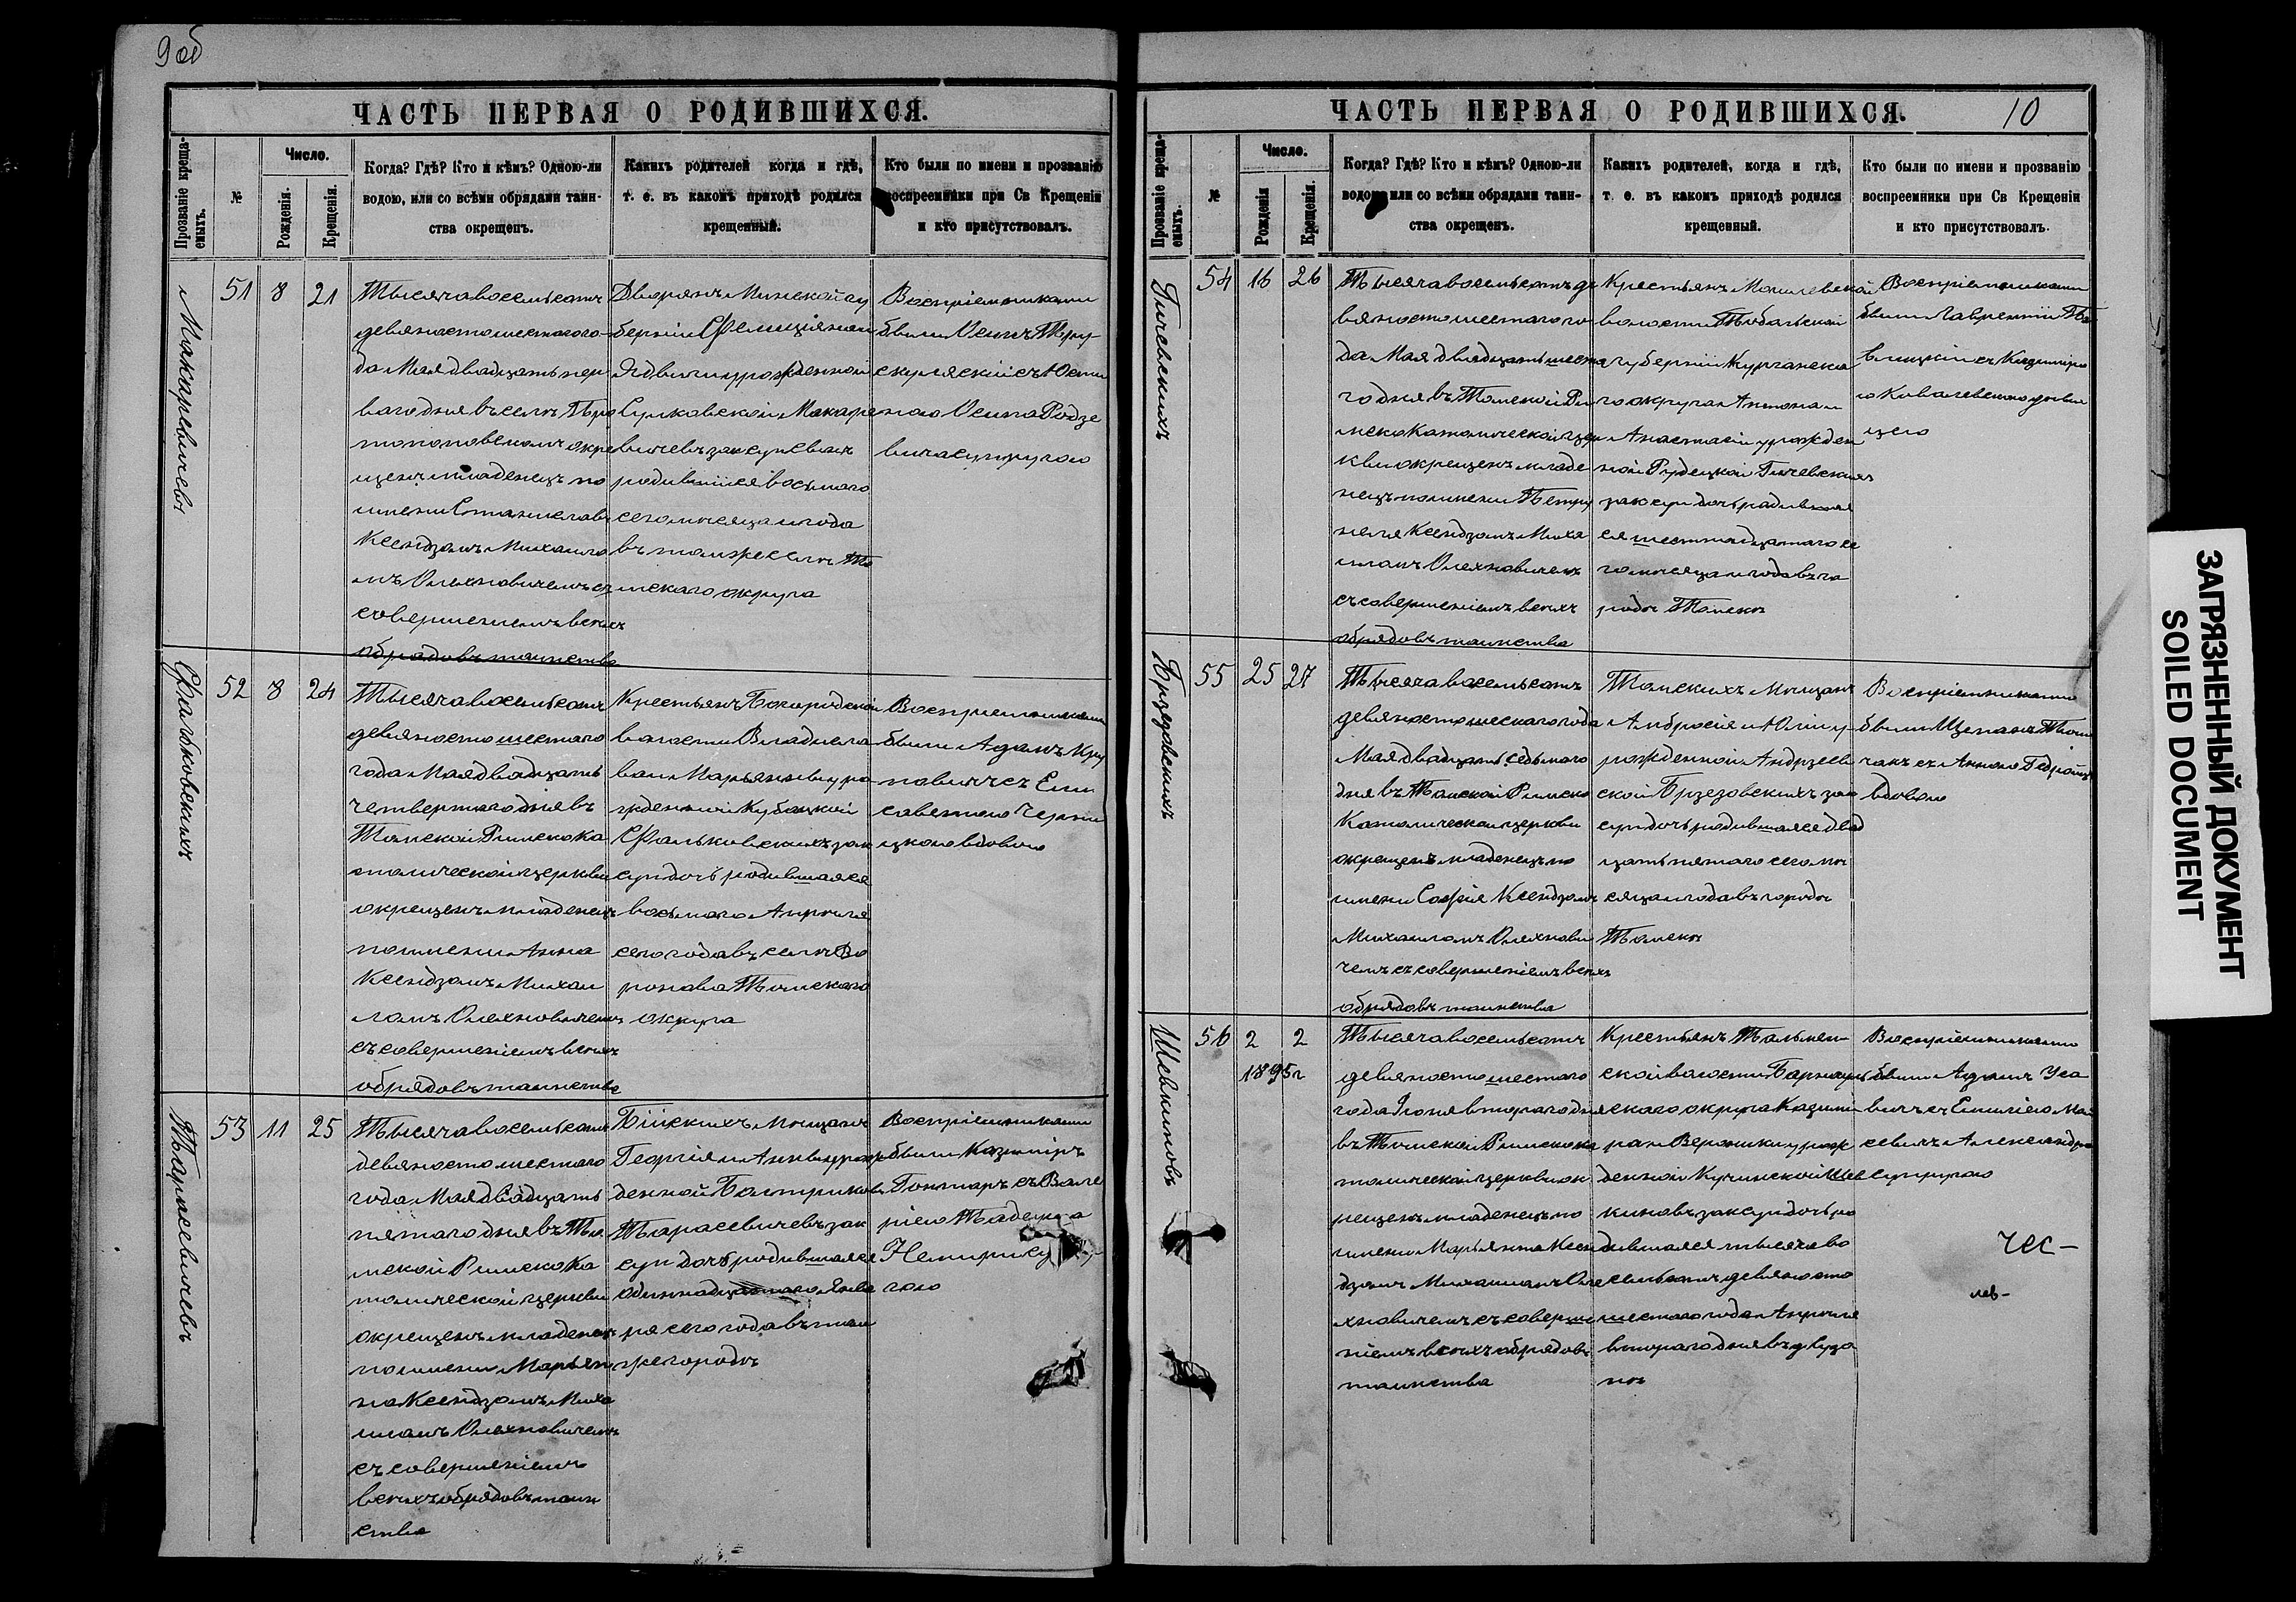 9об
ЧАСТЬ ПЕРВАЯ О РОДИВШИХСЯ.
Прозваніе крещаемыхъ.
№
Число.
Рожденія.
Крещенія.
Когда? Гдѣ? Кто и кѣмъ? Одною-ли
водою, или со всѣми обрядами таин-
ства окрещенъ.
Каких­ъ родителей когда и гдѣ,
т. е. въ какомъ приходѣ родился
крещенный.
Кто были по имени и прозванію
воспреемники при Св Крещеніи
и кто присутствовалъ.
Макаревичевъ
51 8 21
Тысяча восемьсотъ
девяносто шестого го-
да Мая двадцать пер
ваго дня въ селѣ Про
топоповскомъ окре
щенъ младенецъ по
имени Станиславъ
Ксендзомъ Михаило
мъ Олехновичемъ съ
совершеніемъ всѣхъ
обрядовъ таинства
Дворянъ Минской гу
берніи Фелиціяна и
Ядвиги урожденной
Сулковской Макаре
вичевъ зак. сынъ
родившійся восьмого
сего мѣсяца и года
въ томъ же селѣ То
мскаго округа
Воспріемниками
были Осипъ
съ Юсти
ною Осипа Родзе
вича супругою
Фальковскихъ
52 8 24
Тысяча восемьсотъ
девяносто шестого
года Мая двадцать
четвертого дня въ
Томской Римско Ка
толической церкви
окрещенъ младенецъ
по имени Анна
Ксендзомъ Михаи
ломъ Олехновичемъ
съ совершеніемъ всѣхъ
обрядовъ таинства
Крестьянъ Богородской
волости Владисла
ва и Марьянны уро
жденной Кубацкой
Фальковскихъ зак
суп дочь родившаяся
восьмого Апрѣля
сего года въ селѣ Во
роново Томскаго
округа
Воспріемниками
были Адамъ Кру
повичъ съ Ели
саветою Черни
цкою вдовою
Тарасевичевъ
53 11 25
Тысяча восемьсотъ
девяносто шестого
года Мая двадцать
пятаго дня въ То
мской Римско Ка
толической церкви
окрещенъ младенецъ
по имени Марьян
на Ксендзомъ Миха
иломъ Олехновичемъ
съ совершеніемъ
всѣхъ обрядовъ таин
ства
Бійскихъ мѣщанъ
Георгія и Анны урож
денной Батриковой
Тарасевичевъ зак
суп дочь родившаяся
одиннадцатого Янва
ря сего года въ том
же городѣ
Воспріемниками
были Казиміръ
Гонтаръ съ Вале
ріею Тадеуша
гою
ЧАСТЬ ПЕРВАЯ О РОДИВШИХСЯ.
10
Прозваніе крещаемыхъ.
№
Число.
Рожденія
Крещенія.
Когда? Гдѣ? Кто и кѣмъ? Одною-ли
водою, или со всѣми обрядами таин-
ства окрещенъ.
Какихъ родителей, когда и гдѣ,
т. е. въ какомъ приходѣ родился
крещенный.
Кто были по имени и прозванію
воспреемники при Св Крещеніи
и кто присутствовалъ.
Гичевскихъ
54 16 26
Тысяча восемьсотъ де
вяносто шестого го
да Мая двадцать шеста
го дня въ Томской Ри
мско Католической цер
кви окрещенъ младе
нецъ по имени Петру
неля Ксендзомъ Миха
иломъ Олехновичемъ
съ совершеніемъ всѣхъ
обрядовъ таинства
Крестьянъ Могилевской
волости Тобольской
губерніи Курганска
го округа Антона и
Анастасіи урожден
ной Рудецкой Гичевскихъ
зак суп дочь родившая
ся шестнадцатого се
го мѣсяца и года въ го
родѣ Томскѣ
Воспріемниками
были Лаврентій
съ Казимиро
ю Ковалевскою дѣви
цею
Брзезовскихъ
55 25 27
Тысяча восемьсотъ
девяносто шестого года
Мая двадцать седьмого
дня въ Томской Римско
Католической церкви
окрещенъ младенецъ по
имени Софія Ксендзомъ
Михаиломъ Олехнови
чемъ съ совершеніемъ всѣхъ
обрядовъ таинства
Томскихъ мѣщанъ
Амбросія и Юліи у
рожденной Андрзеев
ской Брзезовскихъ зак
суп дочь родившаяся двад
цать пятаго сего мѣ
сяца и года въ городѣ
Томскѣ
Воспріемниками
были Щепанъ
съ Анною
вдовою
Шевкиновъ
56 2 2
1895г
Тысяча восемьсотъ
девяносто шестого
года Іюня второго дня
въ Томской Римско Ка
толической церкви ок
рещенъ младенецъ по
имени Марьянна Ксен
дзомъ Михаиломъ Оле
хновичемъ съ соверше
ніемъ всѣхъ обрядовъ
таинства
Крестьянъ Тальмен
ской волости Барнауль
скаго округа Казими
ра и Вероники урож
денной Кучинской Шев
киновъ зак суп дочь ро
дившаяся тысяча во
семьсотъ девяносто
шестого года Апрѣля
второго дня въ
Воспріемниками
были Адамъ
вичъ съ Емиліею
Александра
супругою
чес-
лев-
ЗАГРЯЗНЕННЫЙ ДОКУМЕНТ
SOILED DOCUMENT